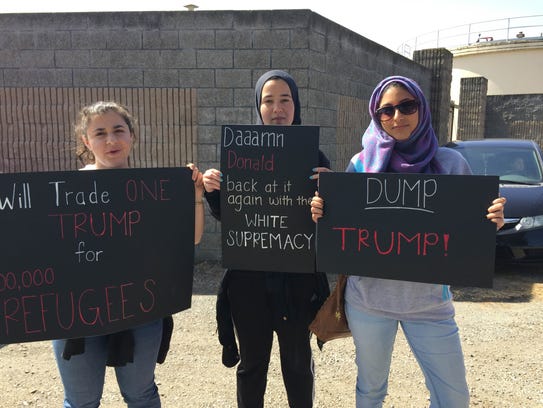 Will Trade ONE
TRUMP
for
00,000
REFUGEES
Daaamn
Donald
back at it
again with the
WHITE
SUPREMACY
DUMP
TRUMP!